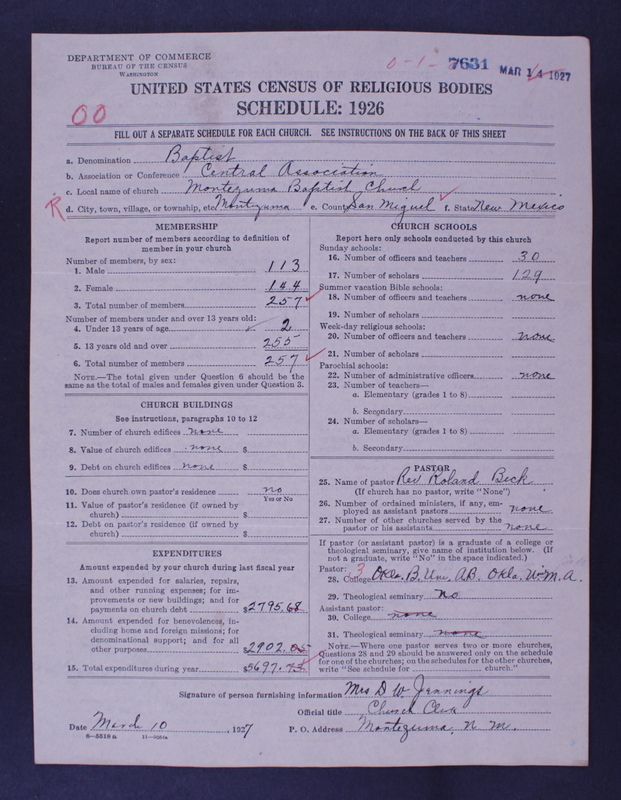 DEPARTMENT OF COMMERCE
BUREAU OF THE CENSUS
WASHINGTON
0-1-
7631
MAR 14 1927
UNITED STATES CENSUS OF RELIGIOUS BODIES
SCHEDULE: 1926
00
FILL OUT A SEPARATE SCHEDULE FOR EACH CHURCH. SEE INSTRUCTIONS ON THE BACK OF THIS SHEET
a. Denomination Baptist
b. Association or Conference Central Association
c. Local name of church Montezuma Baptist Church
R d. City, town, village, or township, etc. Montezuma e. County San Miguel f. State New Mexico
MEMBERSHIP
Report number of members according to definition of
member in your church
Number of members, by sex:
1. Male 113
2. Female 144
3. Total number of members 257
Number of members under and over 13 years old:
4. Under 13 years of age 2
5. 13 years old and over 255
6. Total number of members 257
NOTE.—The total given under Question 6 should be the
same as the total of males and females given under Question 3.
CHURCH BUILDINGS
See instructions, paragraphs 10 to 12
7. Number of church edifices none
8. Value of church edifices none $
9. Debt on church edifices none $
10. Does church own pastor's residence no
Yes or No
11. Value of pastor's residence (if owned by
church) $
12. Debt on pastor's residence (if owned by
church) $
EXPENDITURES
Amount expended by your church during last fiscal year
13. Amount expended for salaries, repairs,
and other running expenses; for im-
provements or new buildings; and for
payments on church debt $2795.68
14. Amount expended for benevolences, in-
cluding home and foreign missions; for
denominational support; and for all
other purposes $2902.05
15. Total expenditures during year $5697.73
CHURCH SCHOOLS
Report here only schools conducted by this church
Sunday schools:
16. Number of officers and teachers 30
17. Number of scholars 129
Summer vacation Bible schools:
18. Number of officers and teachers none
19. Number of scholars
Week-day religious schools:
20. Number of officers and teachers none
21. Number of scholars
Parochial schools:
22. Number of administrative officers none
23. Number of teachers—
a. Elementary (grades 1 to 8)
b. Secondary
24. Number of scholars—
a. Elementary (grades 1 to 8)
b. Secondary
PASTOR
25. Name of pastor Rev Roland Beck
(If church has no pastor, write "None")
26. Number of ordained ministers, if any, em-
ployed as assistant pastors none
27. Number of other churches served by the
pastor or his assistants none
If pastor (or assistant pastor) is a graduate of a college or
theological seminary, give name of institution below. (If
not a graduate, write "No" in the space indicated.)
Pastor: 3
28. College Okla. B. Uni. A.B. Okla. M.A.
29. Theological seminary No
Assistant pastor:
30. College none
31. Theological seminary none
NOTE.—Where one pastor serves two or more churches,
Questions 28 and 29 should be answered only on the schedule
for one of the churches; on the schedules for the other churches,
write "See schedule for church."
Signature of person furnishing information Mrs D W Jennings
Official title Church Clerk
Date March 10, 1927
P. O. Address Montezuma, N. M.